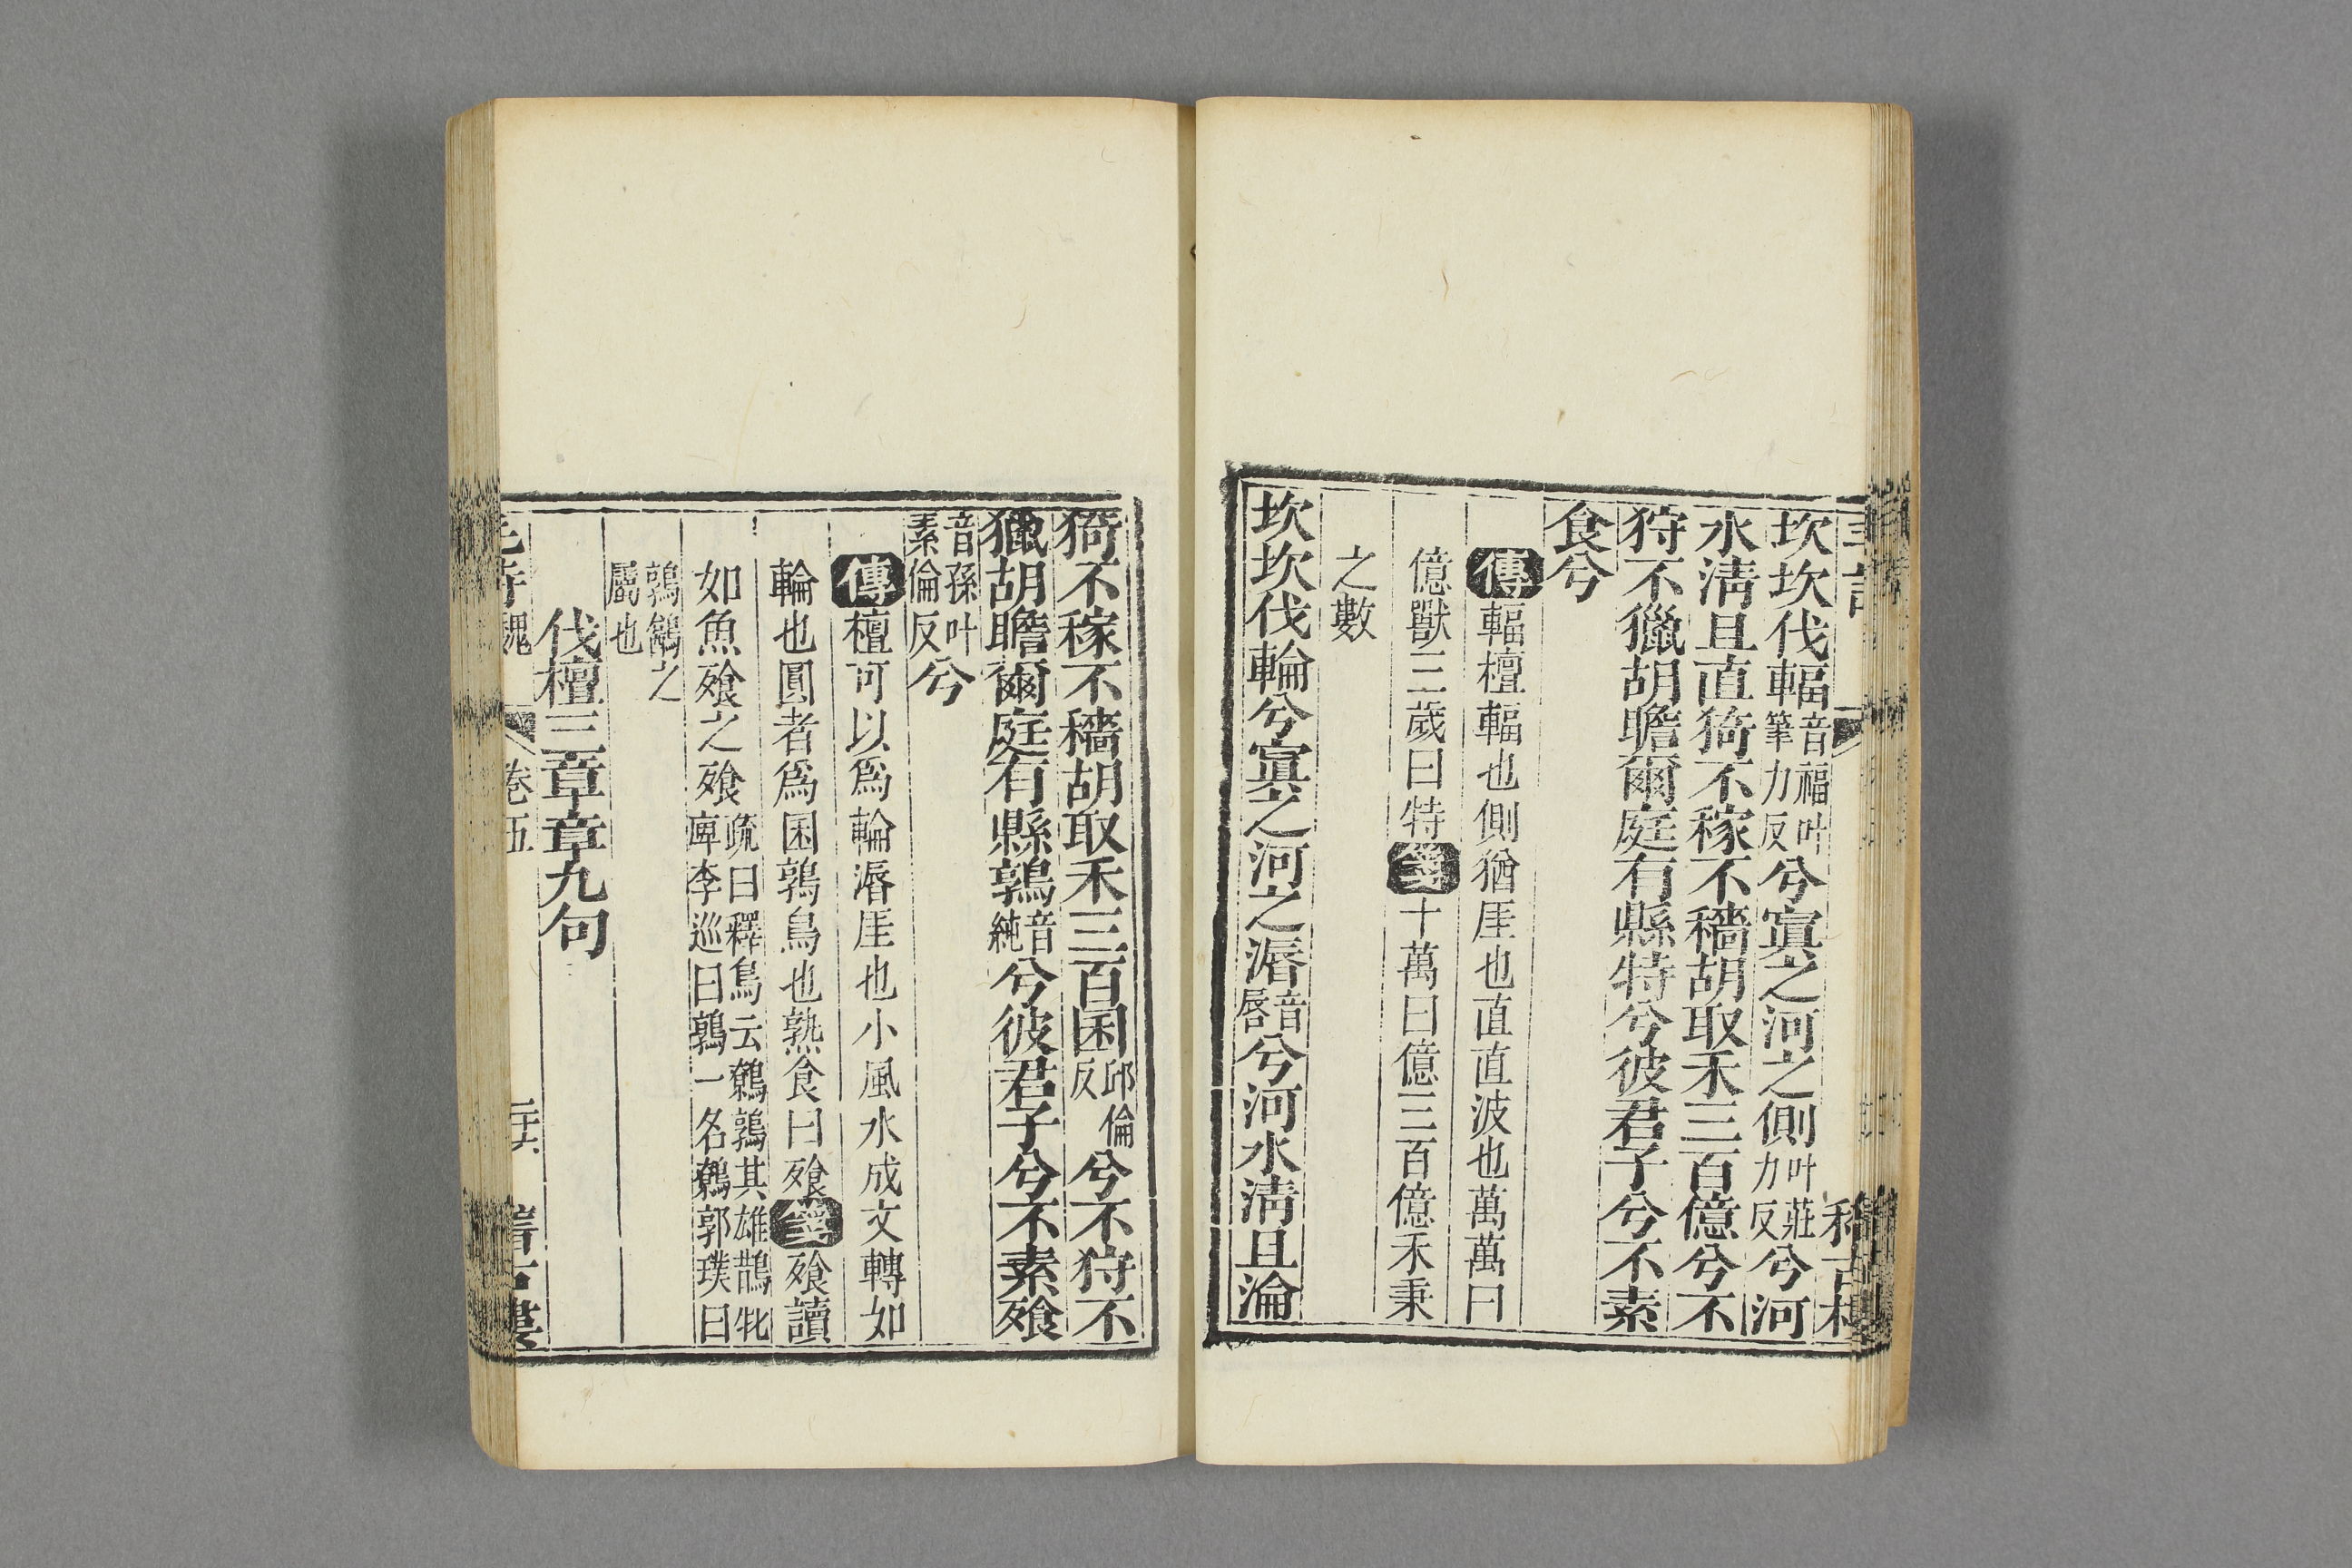 坎坎伐輻音福叶筆力反兮寘之河之側叶莊力反兮河
水清且直猗不稼不穡胡取禾三百億兮不
狩不獵胡瞻爾庭有縣特兮彼君子兮不素
食兮
傳輻檀輻也側猶厓也直直波也萬萬曰
億獸三歲曰特箋十萬曰億三百億禾秉
之數
坎坎伐輪兮寘之河之漘音唇兮河水清且淪
猗不稼不穡胡取禾三百囷邱倫反兮不狩不
獵胡瞻爾庭有縣鶉音純兮彼君子兮不素飧
音孫叶素倫反兮
傳檀可以為輪漘厓也小風水成文轉如
輪也圓者為囷鶉鳥也熟食曰飧箋飧讀
如魚飧之飧疏曰釋鳥云鷯鶉其雄鶛牝庳李巡曰鶉一名鷯郭璞曰
鶉鷂之屬也
伐檀三章章九句
魏 卷五 二十六